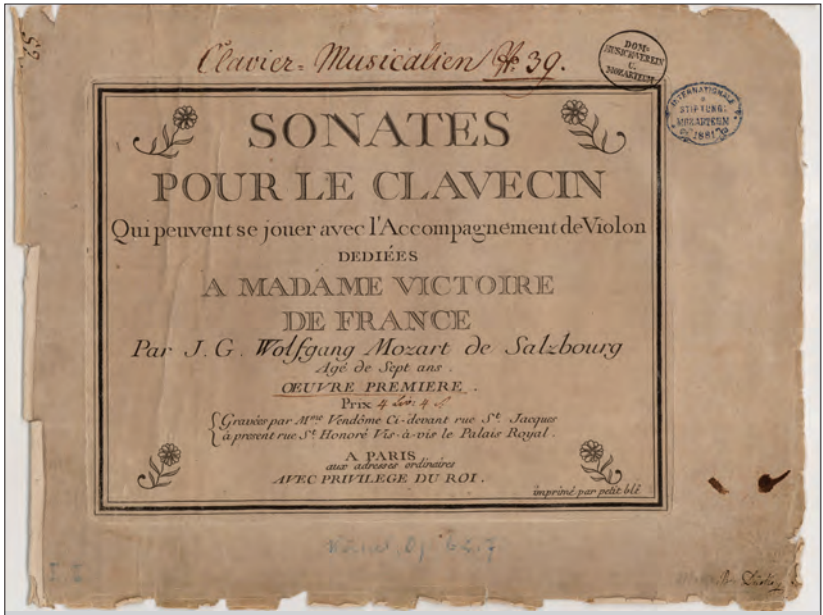 Clavier-Musicalien № 39.
DOM-
MUSICVEREIN
U.
MOZARTEUM
INTERNATIONALE
STIFTUNG:
MOZARTEUM
1881
SONATES
POUR LE CLAVECIN
Qui peuvent se jouer avec l'Accompagnement de Violon
DEDIÉES
A MADAME VICTOIRE
DE FRANCE
Par J. G. Wolfgang Mozart de Salzbourg
Agé de Sept ans.
ŒUVRE PREMIERE.
Prix 4
Gravées par Mme Vendôme Ci-devant rue St. Jacques
à present rue St. Honoré Vis-à-vis le Palais Royal.
A PARIS
aux adresses ordinaires
AVEC PRIVILEGE DU ROI.
imprimé par petit blé